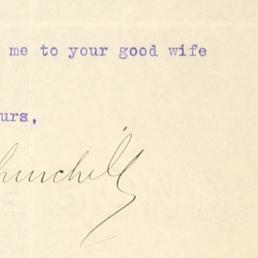 me to your good wife
urs,
hurchill